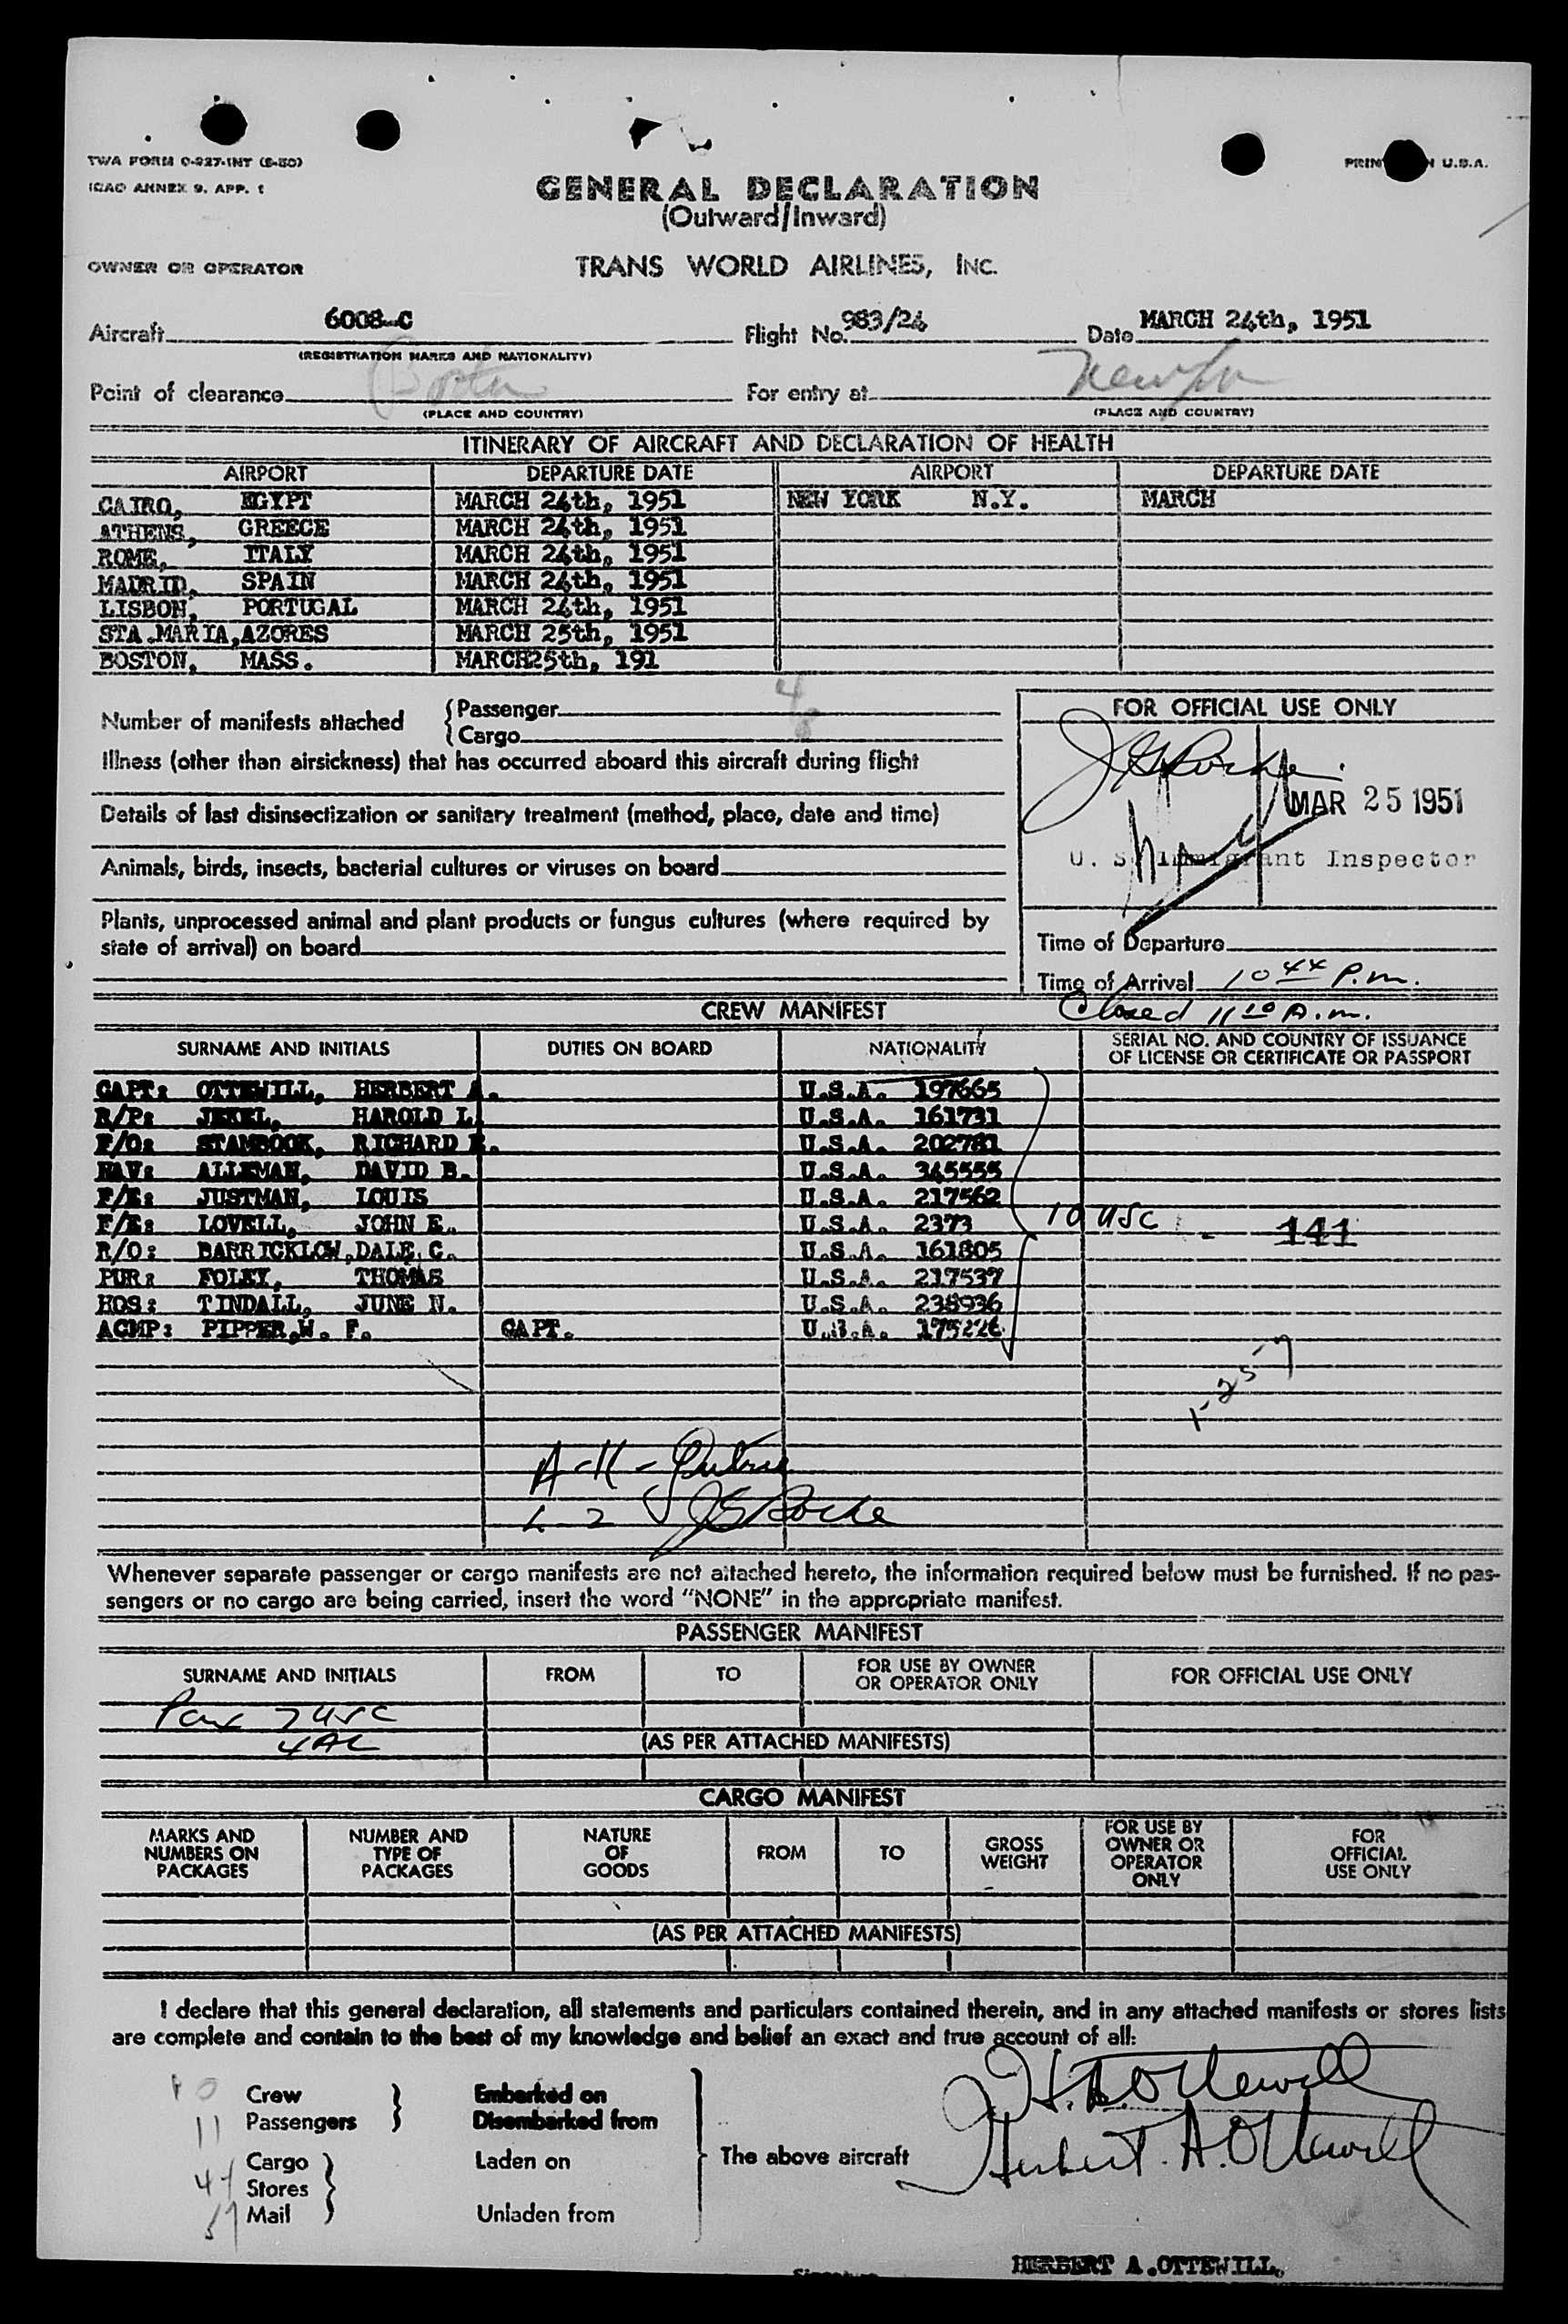 TWA FORM O-927-INT (5-50)
ICAO ANNEX 9. APP. 1
PRIN U.S.A.
GENERAL DECLARATION
(Outward/Inward)
OWNER OR OPERATOR TRANS WORLD AIRLINES, INC.
Aircraft 6008-C Flight No. 983/24 Date MARCH 24th, 1951
(REGISTRATION MARKS AND NATIONALITY)
Point of clearance Boston For entry at
(PLACE AND COUNTRY) (PLACE AND COUNTRY)
ITINERARY OF AIRCRAFT AND DECLARATION OF HEALTH
AIRPORT DEPARTURE DATE AIRPORT DEPARTURE DATE
CAIRO, EGYPT MARCH 24th, 1951 NEW YORK N.Y. MARCH
ATHENS, GREECE MARCH 24th, 1951
ROME, ITALY MARCH 24th, 1951
MADRID, SPAIN MARCH 24th, 1951
LISBON, PORTUGAL MARCH 24th, 1951
STA.MARIA,AZORES MARCH 25th, 1951
BOSTON, MASS. MARCH25th, 191
Number of manifests attached { Passenger 4
{ Cargo 8
Illness (other than airsickness) that has occurred aboard this aircraft during flight
Details of last disinsectization or sanitary treatment (method, place, date and time)
Animals, birds, insects, bacterial cultures or viruses on board
Plants, unprocessed animal and plant products or fungus cultures (where required by
state of arrival) on board
FOR OFFICIAL USE ONLY
J G Roche
MAR 25 1951
U. S. Immigrant Inspector
Time of Departure
Time of Arrival 10 44 P.m.
Closed 11 10 A.m.
CREW MANIFEST
SURNAME AND INITIALS DUTIES ON BOARD NATIONALITY SERIAL NO. AND COUNTRY OF ISSUANCE
OF LICENSE OR CERTIFICATE OR PASSPORT
CAPT: OTTEWILL, HERBERT A. U.S.A. 197665
R/P: JEKEL, HAROLD L. U.S.A. 161731
F/O: STAMBOOK, RICHARD E. U.S.A. 202781
NAV: ALLEMAN, DAVID B. U.S.A. 345555
F/E: JUSTMAN, LOUIS U.S.A. 217562
F/E: LOVELL, JOHN E. U.S.A. 2373 10 USC - 141
R/O: BARRICKLOW,DALE C. U.S.A. 161805
PUR: FOLEY, THOMAS U.S.A. 217537
HOS: TINDALL, JUNE N. U.S.A. 238936
ACMP: PIPPER,W. F. CAPT. U.S.A. 175226
1-25-7
A-11-
1-2 JG Roche
Whenever separate passenger or cargo manifests are not attached hereto, the information required below must be furnished. If no pas-
sengers or no cargo are being carried, insert the word "NONE" in the appropriate manifest.
PASSENGER MANIFEST
SURNAME AND INITIALS FROM TO FOR USE BY OWNER
OR OPERATOR ONLY FOR OFFICIAL USE ONLY
Pax 7 USC
4 AL
(AS PER ATTACHED MANIFESTS)
CARGO MANIFEST
MARKS AND
NUMBERS ON
PACKAGES
NUMBER AND
TYPE OF
PACKAGES
NATURE
OF
GOODS
FROM
TO
GROSS
WEIGHT
FOR USE BY
OWNER OR
OPERATOR
ONLY
FOR
OFFICIAL
USE ONLY
(AS PER ATTACHED MANIFESTS)
I declare that this general declaration, all statements and particulars contained therein, and in any attached manifests or stores lists
are complete and contain to the best of my knowledge and belief an exact and true account of all:
10 Crew } Embarked on
11 Passengers } Disembarked from
Cargo } Laden on
Stores }
Mail } Unladen from
The above aircraft
H.A.Ottewill
Herbert A. Ottewill
HERBERT A.OTTEWILL.